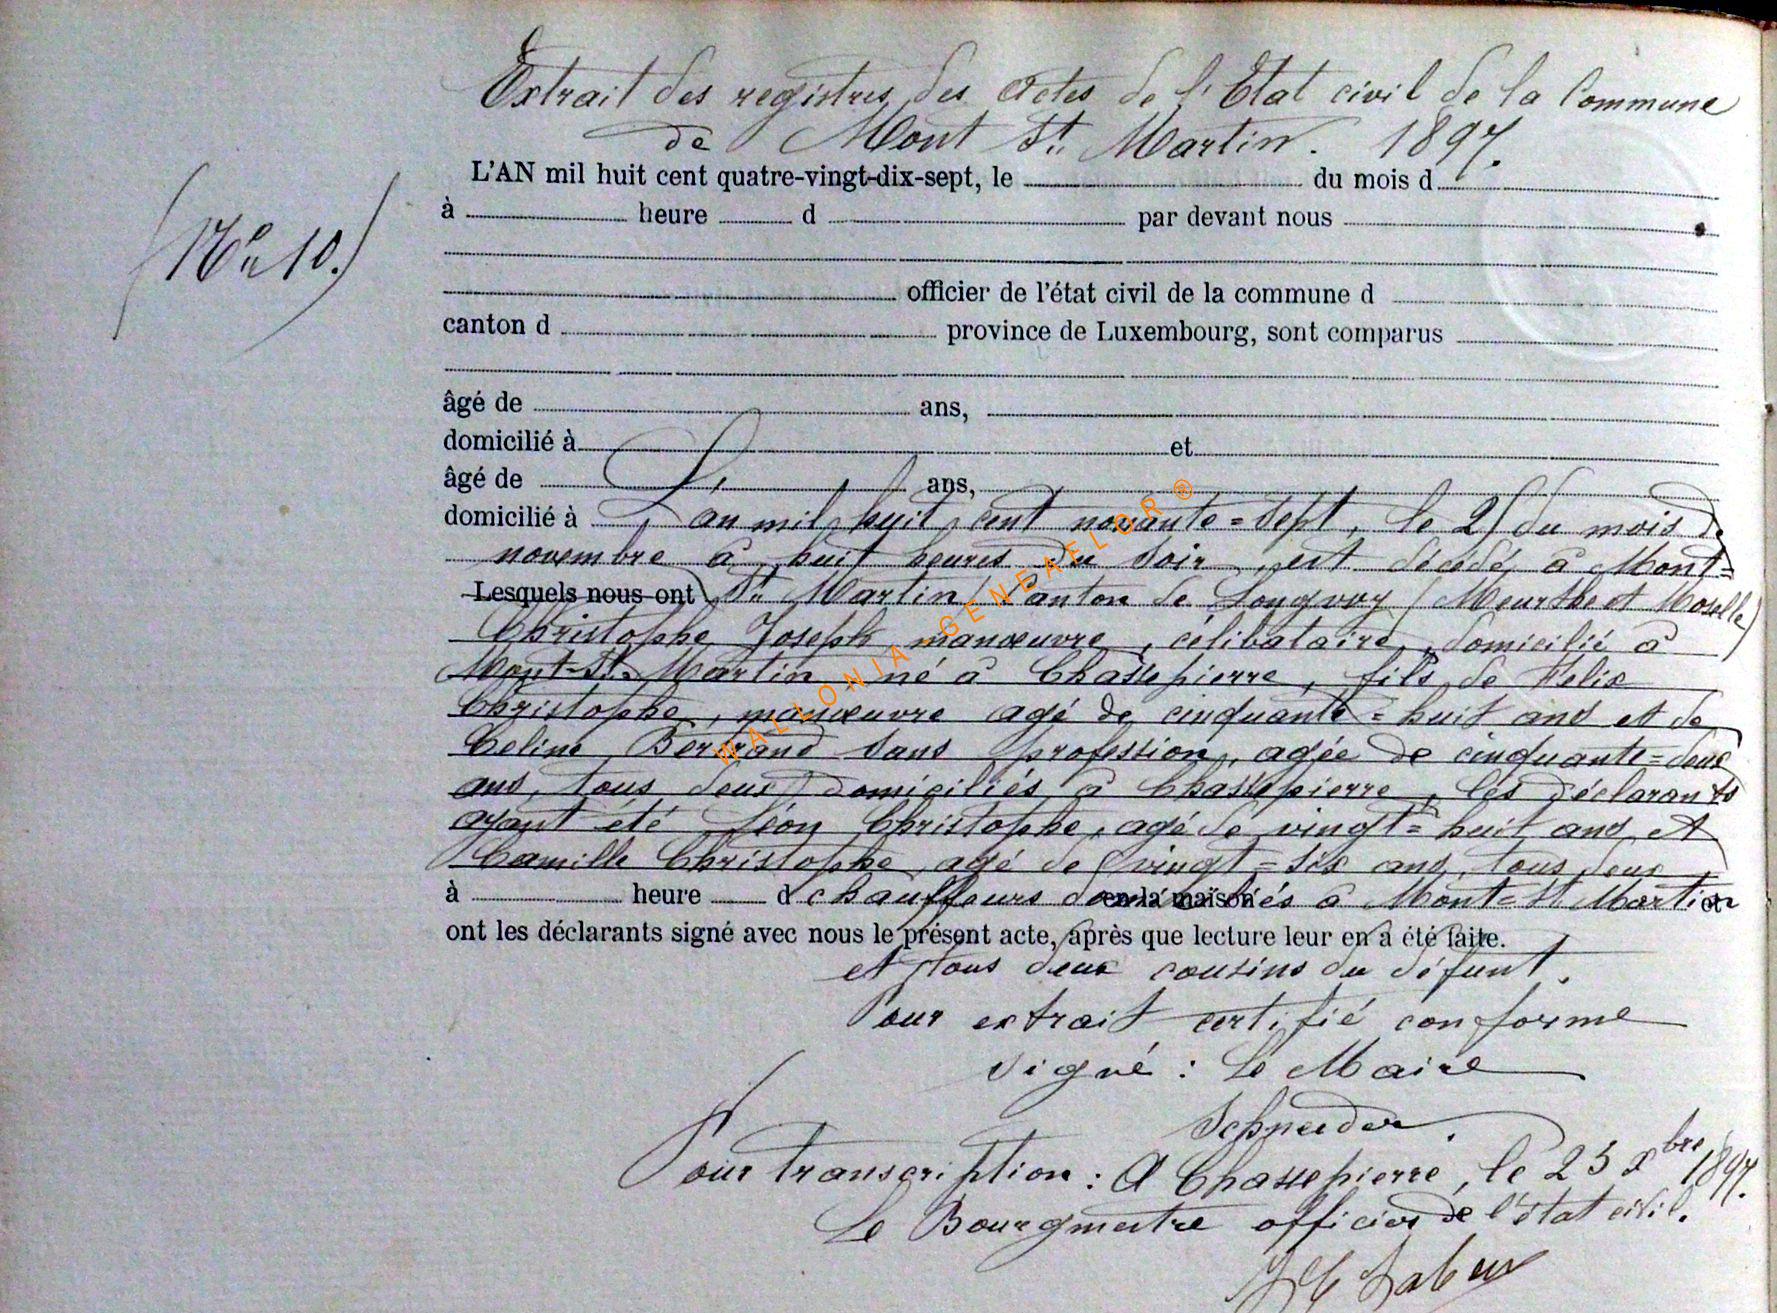 Extrait des registres des actes de l'Etat civil de la Commune
de Mont St. Martin. 1897.
L'AN mil huit cent quatre-vingt-dix-sept, le du mois d
à heure d par devant nous
(No 10.)
officier de l'état civil de la commune d
canton d province de Luxembourg, sont comparus
âgé de ans,
domicilié à et
âgé de ans,
domicilié à L'an mil huit cent novante=sept, le du mois de
novembre à huit heures du soir, est décédé à Mont=
Lesquels nous ont St. Martin Canton de Longwy (Meurthe et Moselle)
Christophe Joseph manœuvre, célibataire, domicilié à
Mont=St. Martin né à Chassepierre, fils de Felix
Christophe, manœuvre agé de cinquante=huit ans et de
Celine Bertrand sans profession, agée de cinquante=deux
ans, tous deux domiciliés à Chassepierre, les déclarants
ayant été Léon Christophe, agé de vingt=huit ans et
Camille Christophe agé de vingt=six ans, tous deux
à heure d chauffeurs domiciliés en la maison à Mont=St Martin et
ont les déclarants signé avec nous le présent acte, après que lecture leur en a été faite.
et tous deux cousins du défunt.
Pour extrait certifié conforme
signé : Le Maire
Schneider.
Pour transcription : A Chassepierre, le 25 Xbre 1897.
Le Bourgmestre officier de l'état civil.
WALLONIA GENEAELOR ®